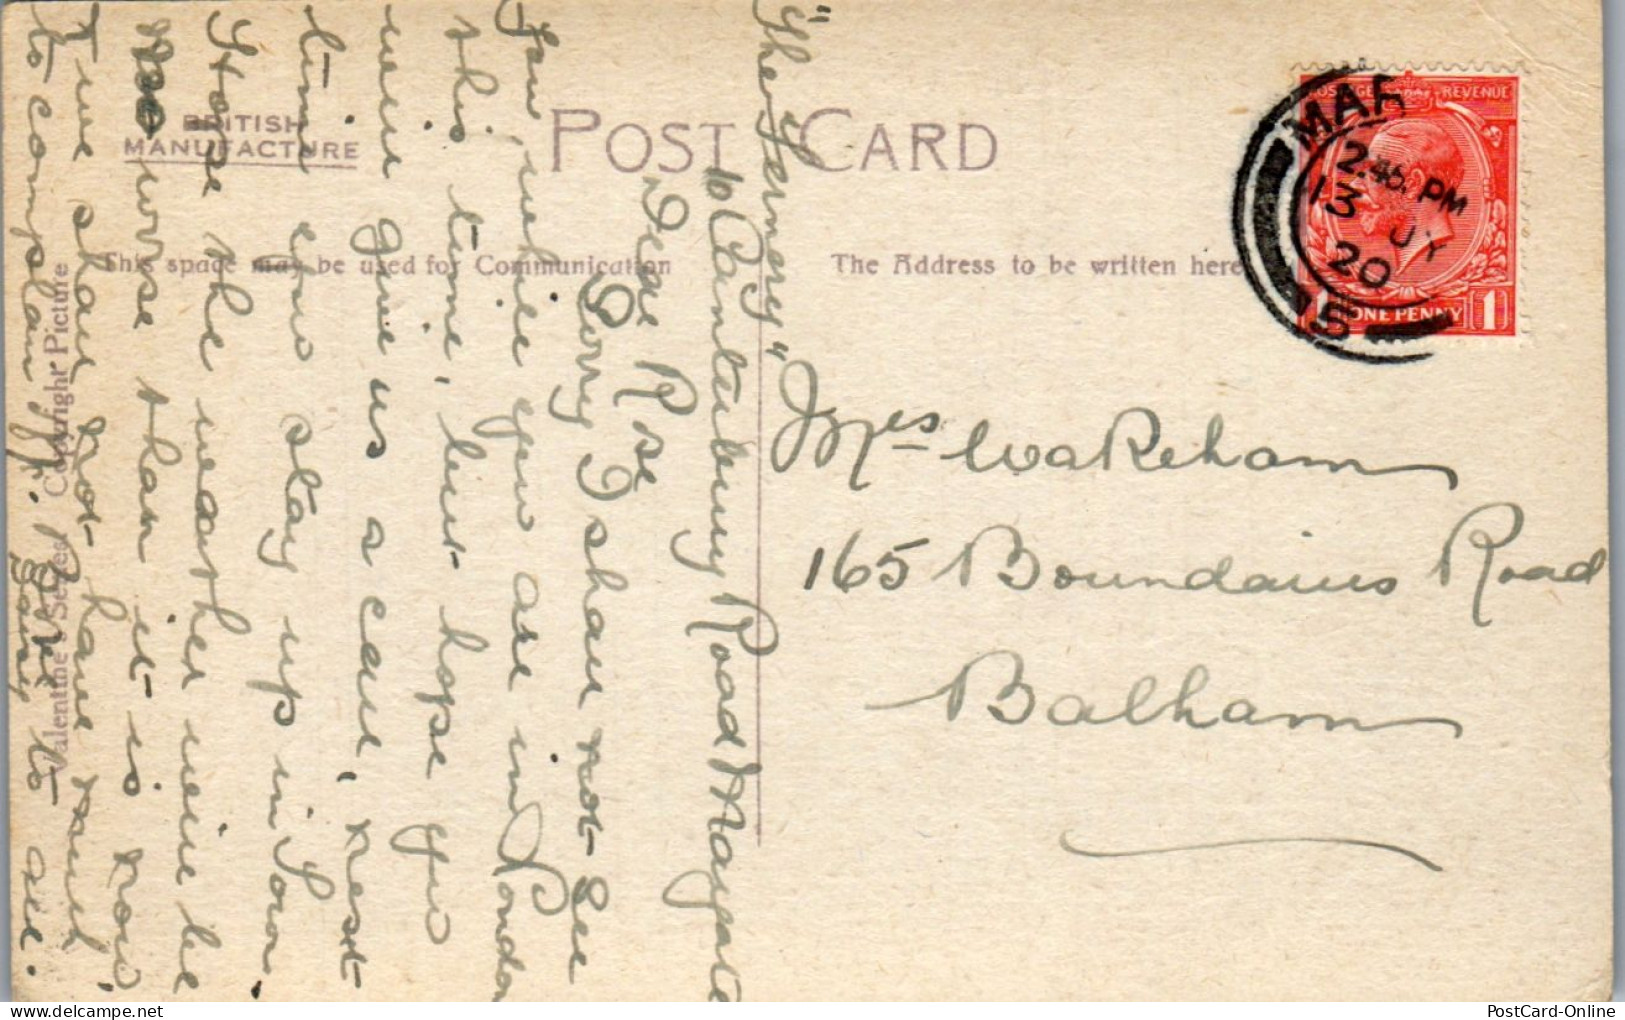 BRITISH
MANUFACTURE
POST CARD
This space may be used for Communication
The Address to be written here
Valentine Series Copyright Picture
POSTAGE REVENUE
1 ONE PENNY 1
MAR
2.45 PM
13 JY
20
5
Mrs Wakeham
165 Boundaries Road
Balham
"The Fernery"
10 Canterbury Road Margate
Dear Rose
Sorry I shall not see
you while you are in London
this time, but hope you
will give us a call, next
time you stay up in Town.
Hope the weather will be
no worse than it is now
& we shall not have much
to complain of. Love to all.